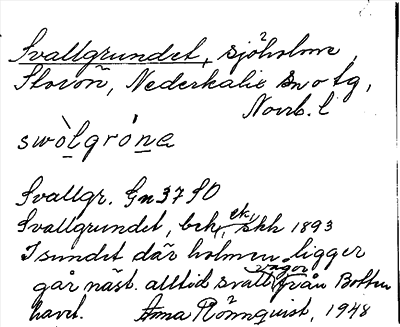 Svallgrundet, sjöholme,
Storön, Nederkalix sn o tg,
Norrb. l
swòlgróna
Svallgr. Gn 37 SO
Svallgrundet, bck, ek, skk 1893
I sundet där holmen ligger
går näst. alltid svallvågor från Botten
havet. Anna Rönnquist, 1948